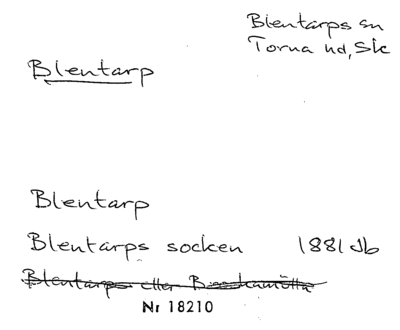 Blentarps sn
Torna hd, Sk
Blentarp
Blentarp
Blentarps socken 1881 Jb
Blentarps eller
Nr 18210